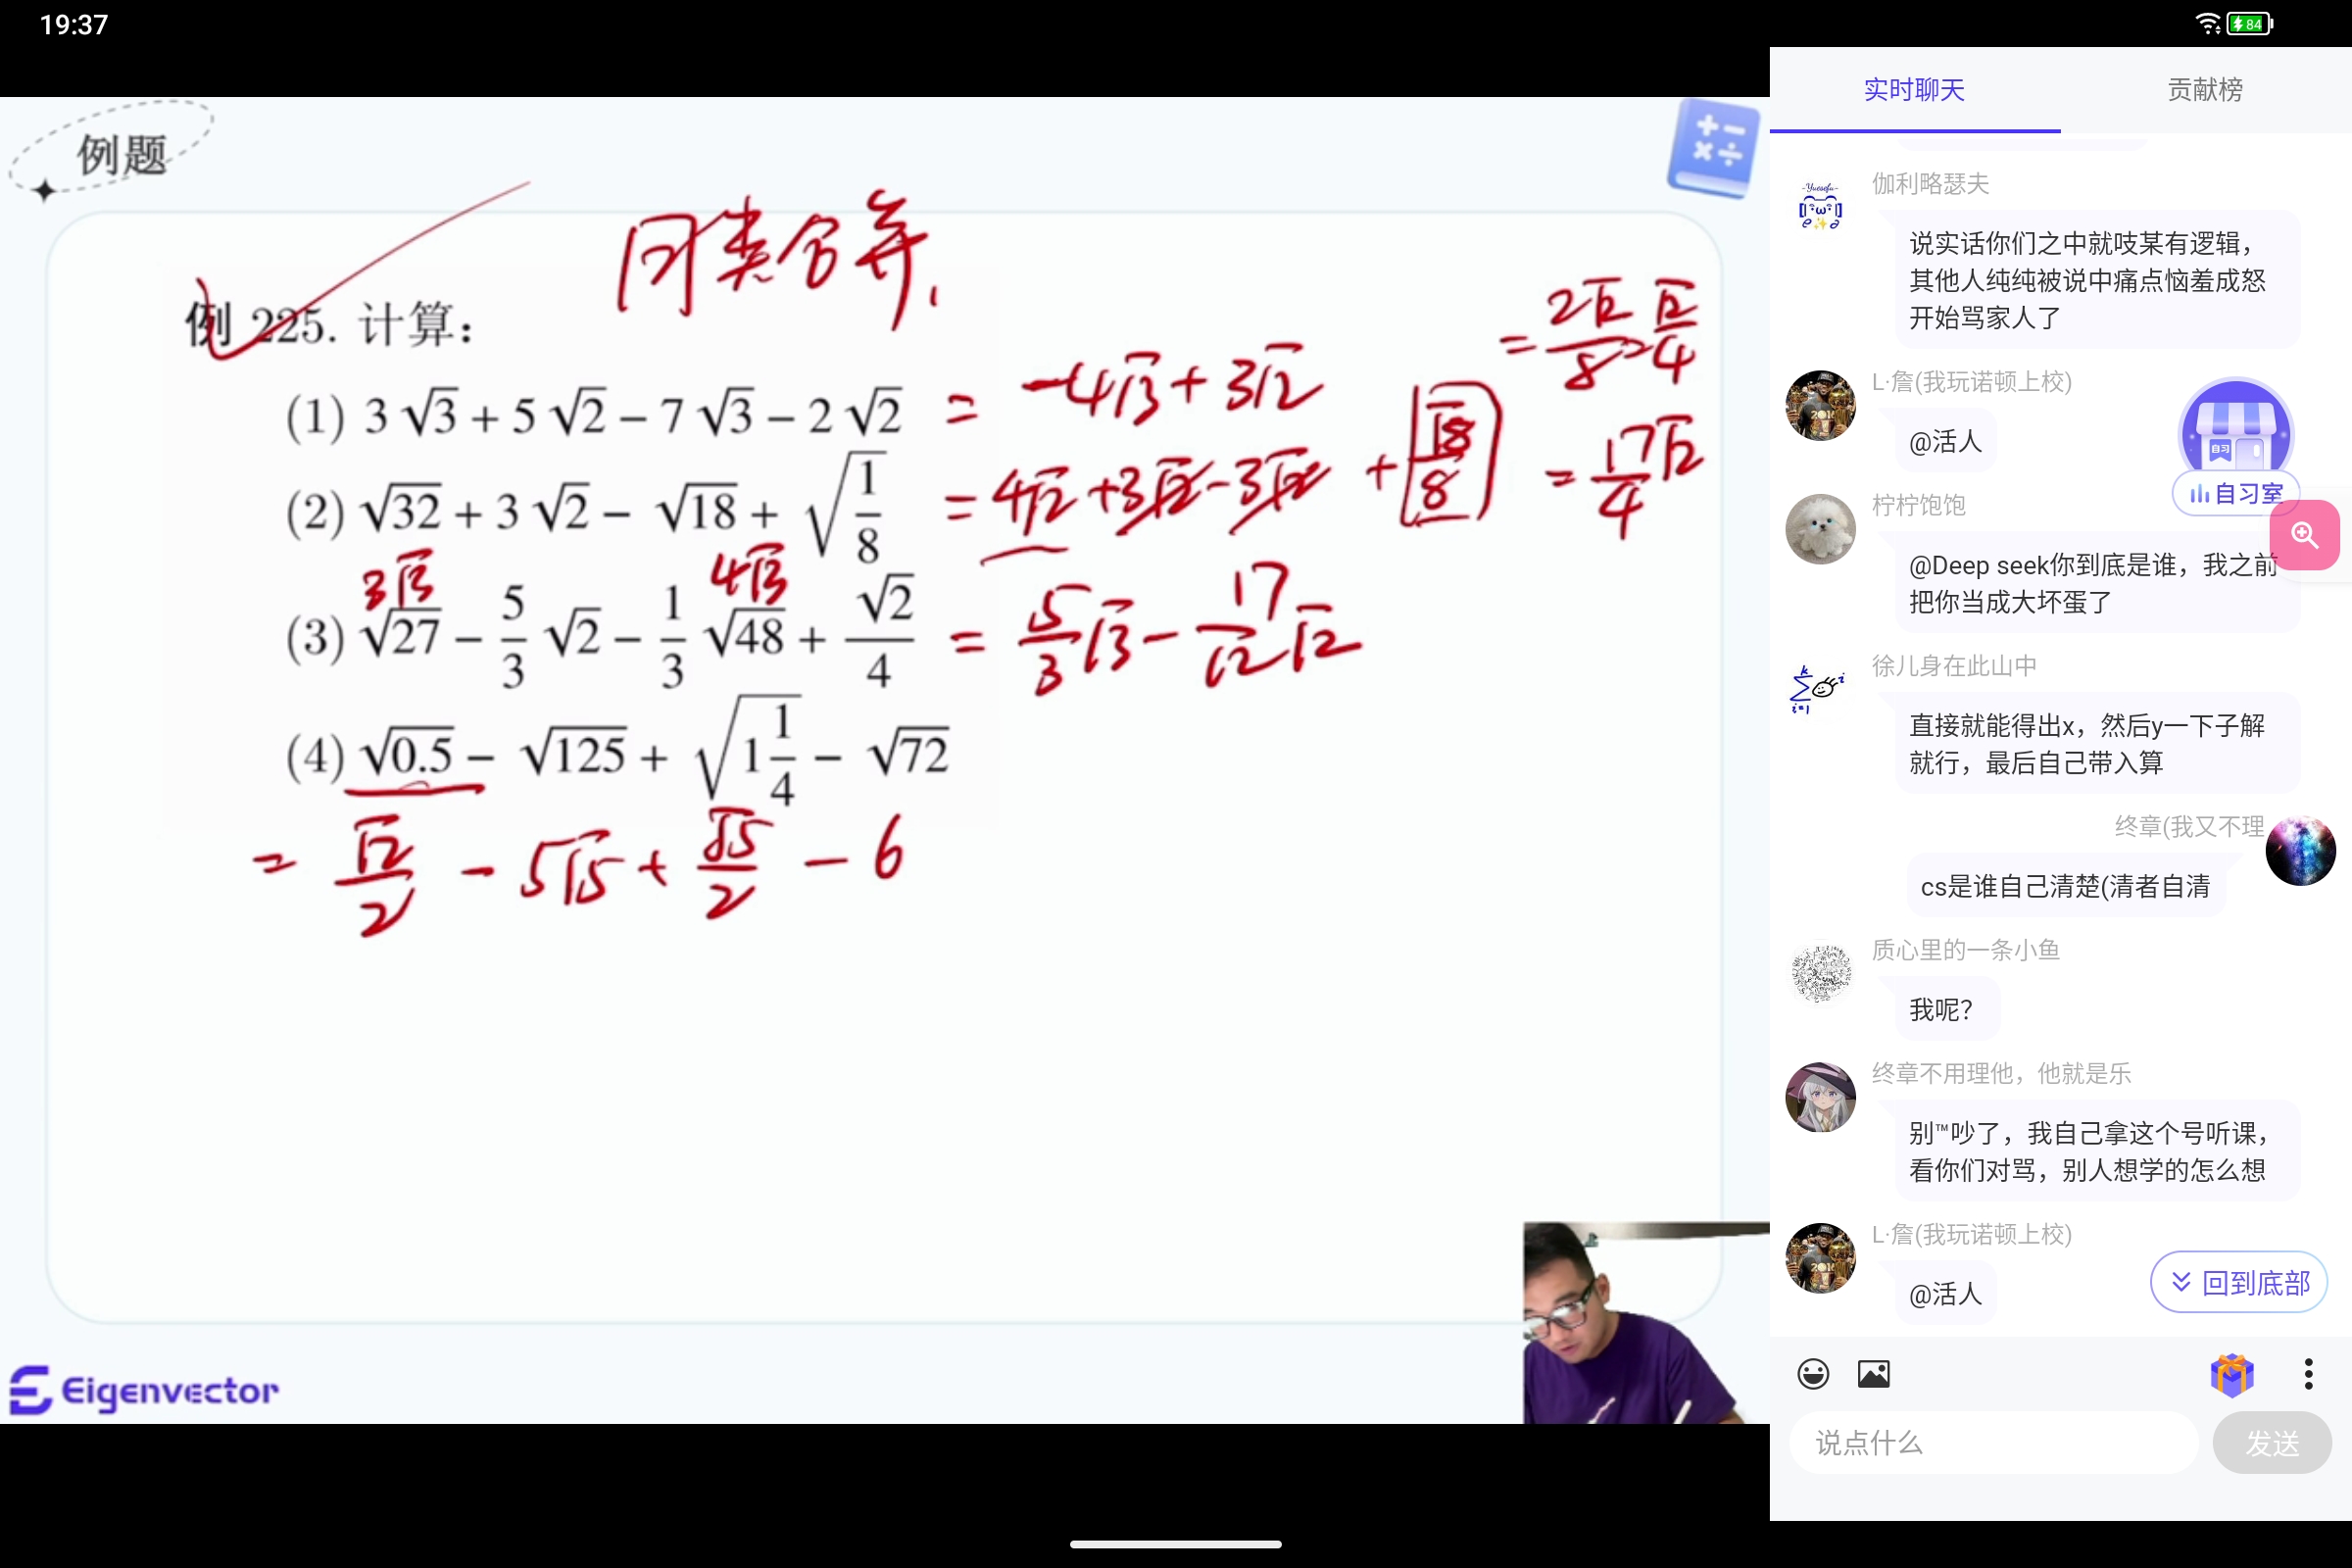 19:37
84
例题
同类合并,
例 225. 计算：
(1) 3√3 + 5√2 − 7√3 − 2√2 = -4√3 + 3√2
(2) √32 + 3√2 − √18 + √(1/8) = 4√2 + 3√2 - 3√2 + √8/8 = 2√2/8 = √2/4
= 17/4 √2
3√3 4√3
(3) √27 − 5/3 √2 − 1/3 √48 + √2/4 = 5/3 √3 - 17/12 √2
(4) √0.5 − √125 + √(1 1/4) − √72
= √2/2 - 5√5 + √5/2 - 6
Eigenvector
实时聊天 贡献榜
-Yuesefu-
伽利略瑟夫
说实话你们之中就吱某有逻辑，
其他人纯纯被说中痛点恼羞成怒
开始骂家人了
L·詹(我玩诺顿上校)
@活人
自习
自习室
柠柠饱饱
@Deep seek你到底是谁，我之前
把你当成大坏蛋了
徐儿身在此山中
直接就能得出x，然后y一下子解
就行，最后自己带入算
终章(我又不理
cs是谁自己清楚(清者自清
质心里的一条小鱼
我呢？
终章不用理他，他就是乐
别™吵了，我自己拿这个号听课，
看你们对骂，别人想学的怎么想
L·詹(我玩诺顿上校)
@活人
回到底部
说点什么
发送